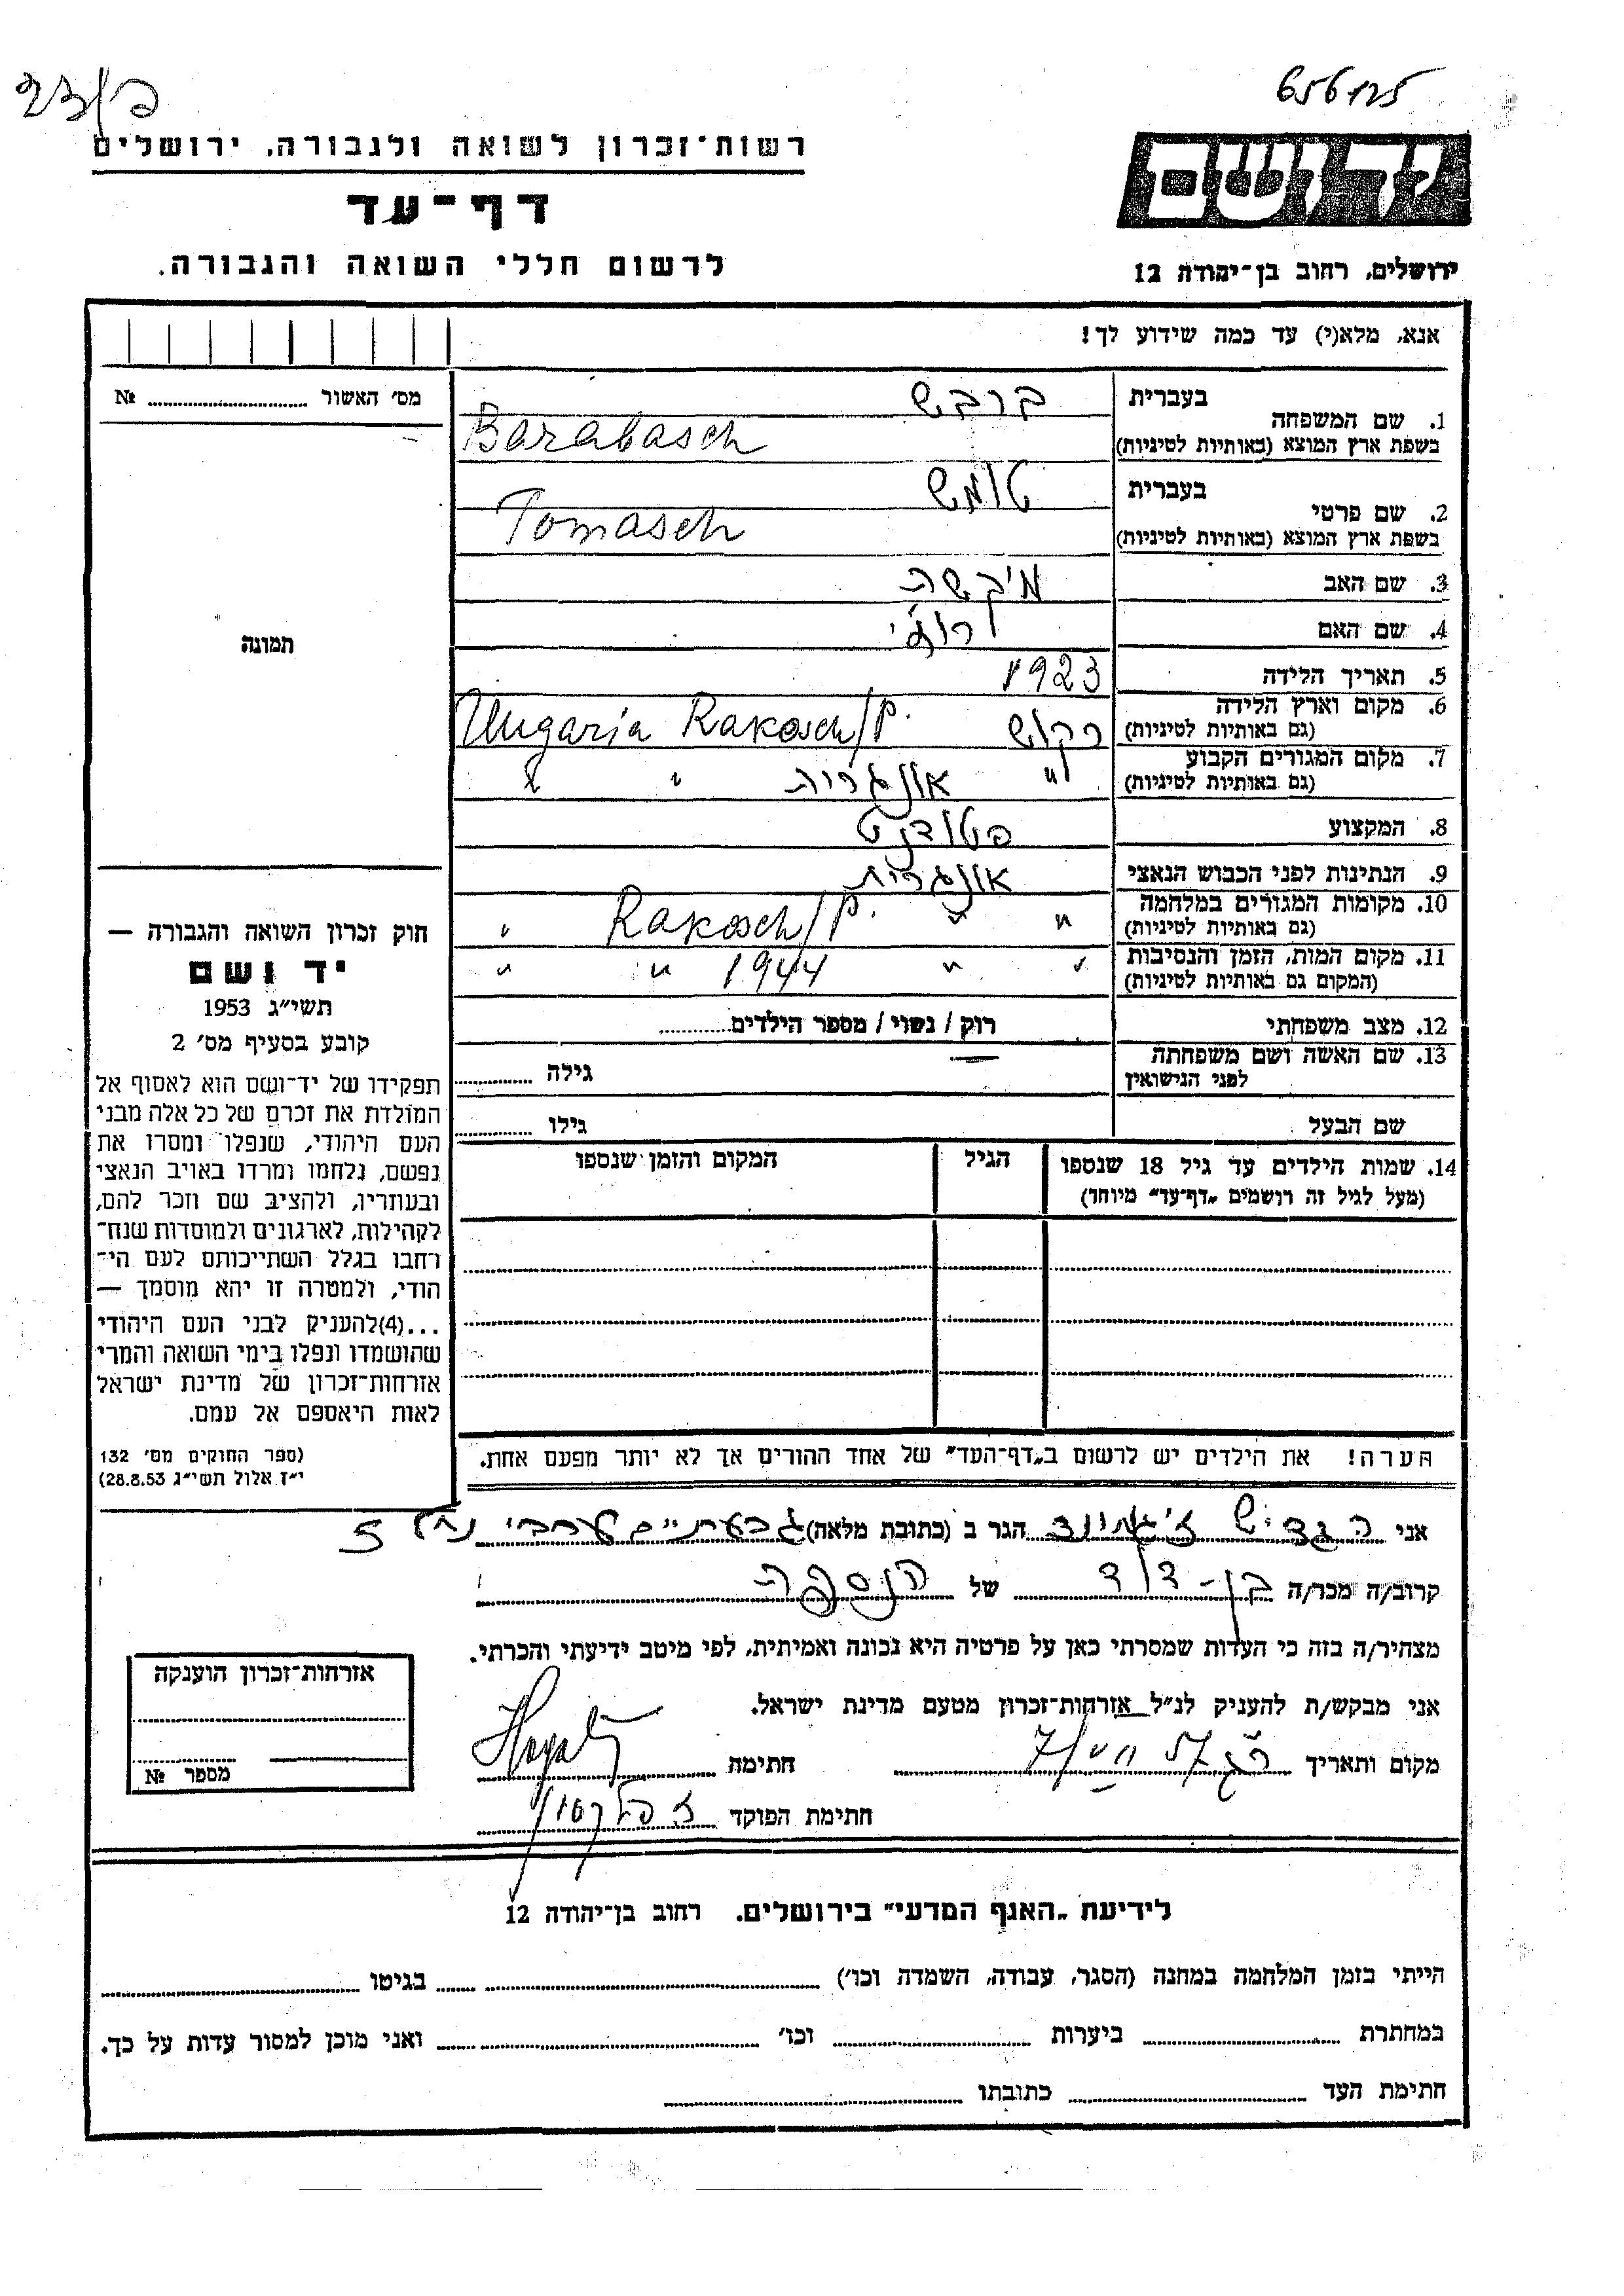 656125
רשות־זכרון לשואה ולגבורה, ירושלים
יד ושם
דף־עד
לרשום חללי השואה והגבורה.
ירושלים, רחוב בן־יהודה 12
אנא, מלא(י) עד כמה שידוע לך!
מס׳ האשור ........ №
תמונה
בעברית ברבש
1. שם המשפחה
בשפת ארץ המוצא (באותיות לטיניות) Barabasch
בעברית טומש
2. שם פרטי
בשפת ארץ המוצא (באותיות לטיניות) Tomasch
3. שם האב
4. שם האם
5. תאריך הלידה 1923
6. מקום וארץ הלידה
(גם באותיות לטיניות) רקוש Ungaria Rakosch/P.
7. מקום המגורים הקבוע
(גם באותיות לטיניות) " אונגריה " "
8. המקצוע סטודנט
9. הנתינות לפני הכבוש הנאצי אונגרית
10. מקומות המגורים במלחמה
(גם באותיות לטיניות) " " Rakosch/P. "
11. מקום המות, הזמן והנסיבות
(המקום גם באותיות לטיניות) " " 1944 " "
12. מצב משפחתי רוק / נשוי / מספר הילדים........
13. שם האשה ושם משפחתה
לפני הנישואין גילה ........
שם הבעל גילו ........
14. שמות הילדים עד גיל 18 שנספו הגיל המקום והזמן שנספו
(מעל לגיל זה רושמים „דף־עד" מיוחד)
חוק זכרון השואה והגבורה —
יד ושם
תשי"ג 1953
קובע בסעיף מס׳ 2
תפקידו של יד־ושם הוא לאסוף אל
המולדת את זכרם של כל אלה מבני
העם היהודי, שנפלו ומסרו את
נפשם, נלחמו ומרדו באויב הנאצי
ובעוזריו, ולהציב שם וזכר להם,
לקהילות, לארגונים ולמוסדות שנח־
רחבו בגלל השתייכותם לעם הי־
הודי, ולמטרה זו יהא מוסמך —
...(4)להעניק לבני העם היהודי
שהושמדו ונפלו בימי השואה והמרי
אזרחות־זכרון של מדינת ישראל
לאות היאספם אל עמם.
(ספר החוקים מס׳ 132
י"ז אלול תשי"ג 28.8.53)
הערה! את הילדים יש לרשום ב„דף־העד" של אחד ההורים אך לא יותר מפעם אחת.
אני הגדיש זיגמונד הגר ב (כתובת מלאה) גבעתיים ערבי נחל 5
קרוב/ה מכר/ה בן-דוד של הנספה
מצהיר/ה בזה כי העדות שמסרתי כאן על פרטיה היא נכונה ואמיתית, לפי מיטב ידיעתי והכרתי.
אני מבקש/ת להעניק לנ"ל אזרחות־זכרון מטעם מדינת ישראל.
מקום ותאריך חתימה
חתימת הפוקד
אזרחות־זכרון הוענקה
מספר №
לידיעת „האגף המדעי" בירושלים. רחוב בן־יהודה 12
הייתי בזמן המלחמה במחנה (הסגר, עבודה, השמדה וכו׳) ........ בגיטו ........
במחתרת ........ ביערות ........ וכו׳ ........ ואני מוכן למסור עדות על כך.
חתימת העד ........ כתובתו ........